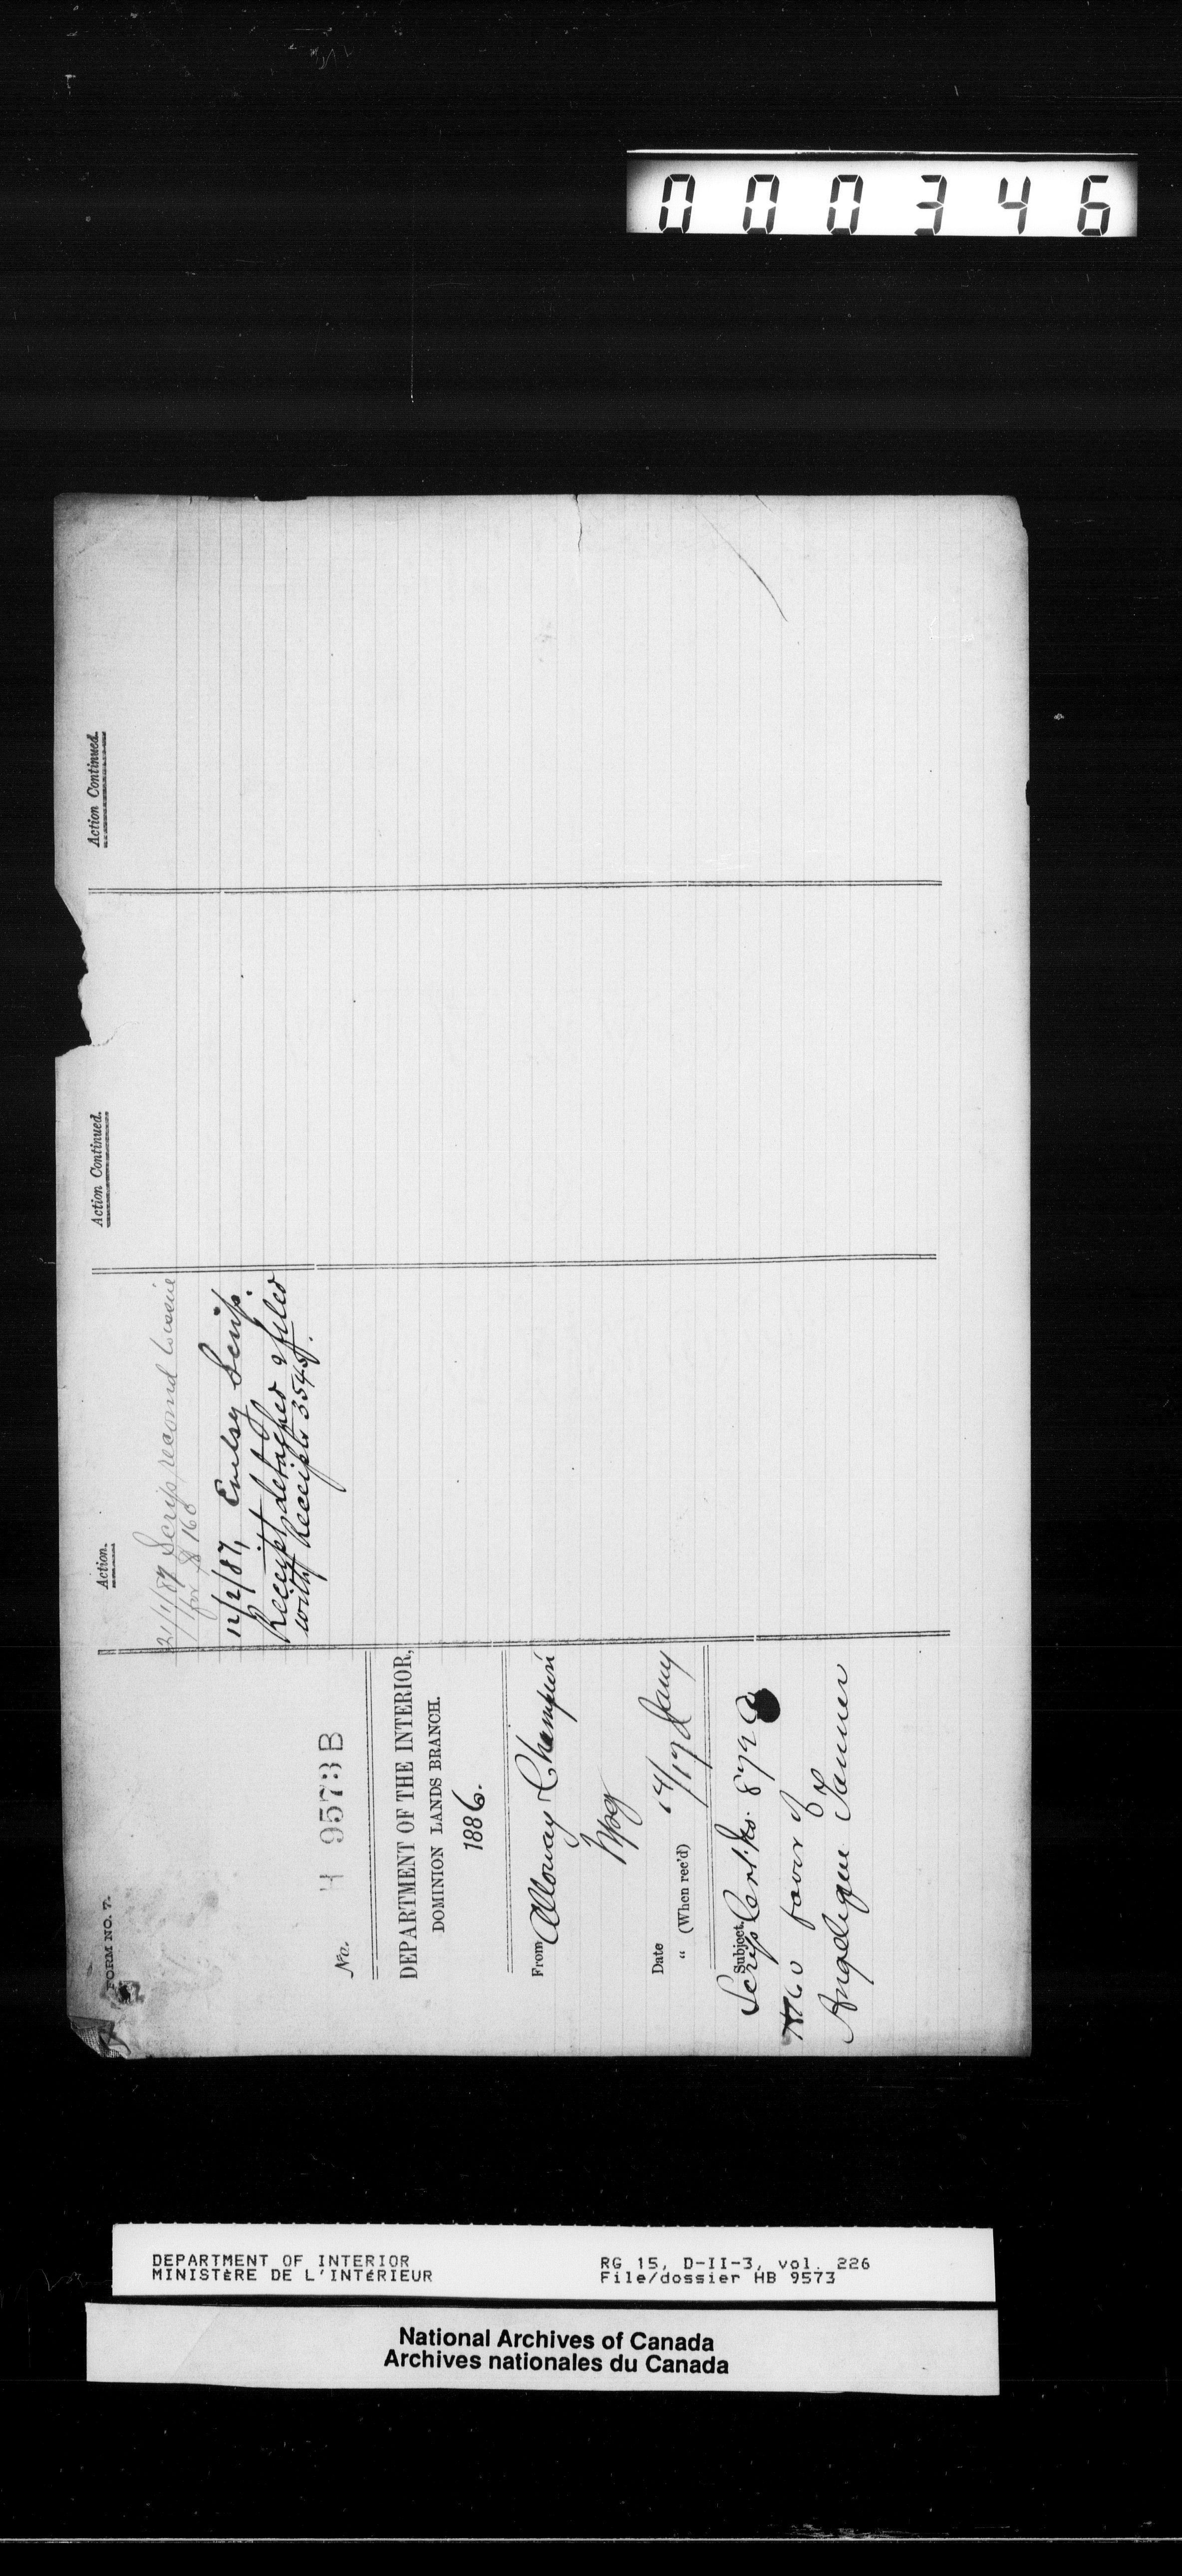 000346
FORM NO. 7.
No. H 9573 B
DEPARTMENT OF THE INTERIOR,
DOMINION LANDS BRANCH.
1886.
From Alloway & Champion
Wpg
Date 14/
" (When rec'd) 17 Jany
Subject,
Scrip Certif. 879
$160 favor of
Angelique
Action.
21/1/87 Scrip recomd to issue
for $160
12/2/87, Enclsg Scrip.
Receipt detached & filed
with Receipts 3545
Action Continued.
Action Continued.
DEPARTMENT OF INTERIOR
MINISTÈRE DE L'INTÉRIEUR
RG 15, D-II-3, vol. 226
File/dossier HB 9573
National Archives of Canada
Archives nationales du Canada